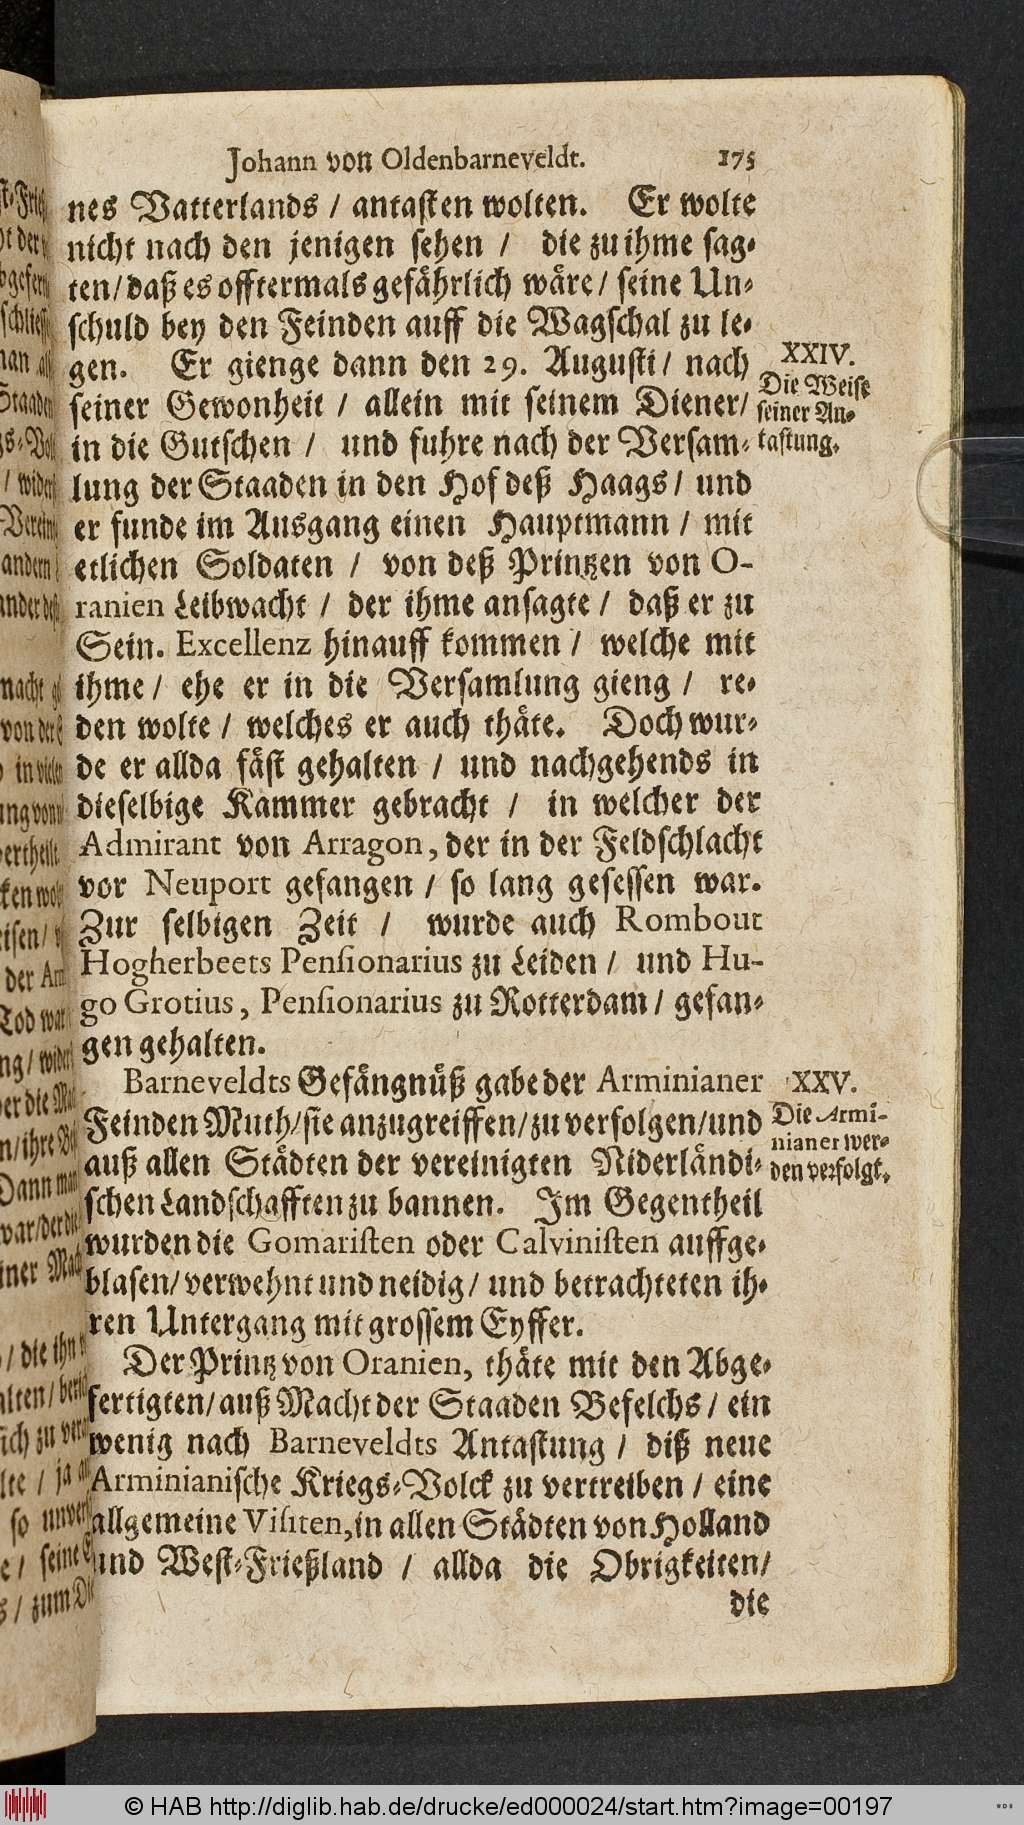 Johann von Oldenbarneveldt. 175
nes Vatterlands / antasten wolten. Er wolte
nicht nach den jenigen sehen / die zu ihme sag-
ten / daß es offtermals gefährlich wäre / seine Un-
schuld bey den Feinden auff die Wagschal zu le-
gen. Er gienge dann den 29. Augusti / nach
seiner Gewonheit / allein mit seinem Diener /
in die Gutschen / und fuhre nach der Versam-
lung der Staaden in den Hof deß Haags / und
er funde im Ausgang einen Hauptmann / mit
etlichen Soldaten / von deß Printzen von O-
ranien Leibwacht / der ihme ansagte / daß er zu
Sein. Excellenz hinauff kommen / welche mit
ihme / ehe er in die Versamlung gieng / re-
den wolte / welches er auch thäte. Doch wur-
de er allda fäst gehalten / und nachgehends in
dieselbige Kammer gebracht / in welcher der
Admirant von Arragon, der in der Feldschlacht
vor Neuport gefangen / so lang gesessen war.
Zur selbigen Zeit / wurde auch Rombout
Hogherbeets Pensionarius zu Leiden / und Hu-
go Grotius, Pensionarius zu Rotterdam / gefan-
gen gehalten.
XXIV.
Die Weise
seiner An-
tastung.
Barneveldts Gefängnüß gabe der Arminianer
Feinden Muth / sie anzugreiffen / zu verfolgen / und
auß allen Städten der vereinigten Niderländi-
schen Landschafften zu bannen. Im Gegentheil
wurden die Gomaristen oder Calvinisten auffge-
blasen / verwehnt und neidig / und betrachteten ih-
ren Untergang mit grossem Eyffer.
XXV.
Die Armi-
nianer wer-
den verfolgt.
Der Printz von Oranien, thäte mit den Abge-
fertigten / auß Macht der Staaden Befelchs / ein
wenig nach Barneveldts Antastung / diß neue
Arminianische Kriegs-Volck zu vertreiben / eine
allgemeine Visiten, in allen Städten von Holland
und West-Frießland / allda die Obrigkeiten /
die
© HAB http://diglib.hab.de/drucke/ed000024/start.htm?image=00197